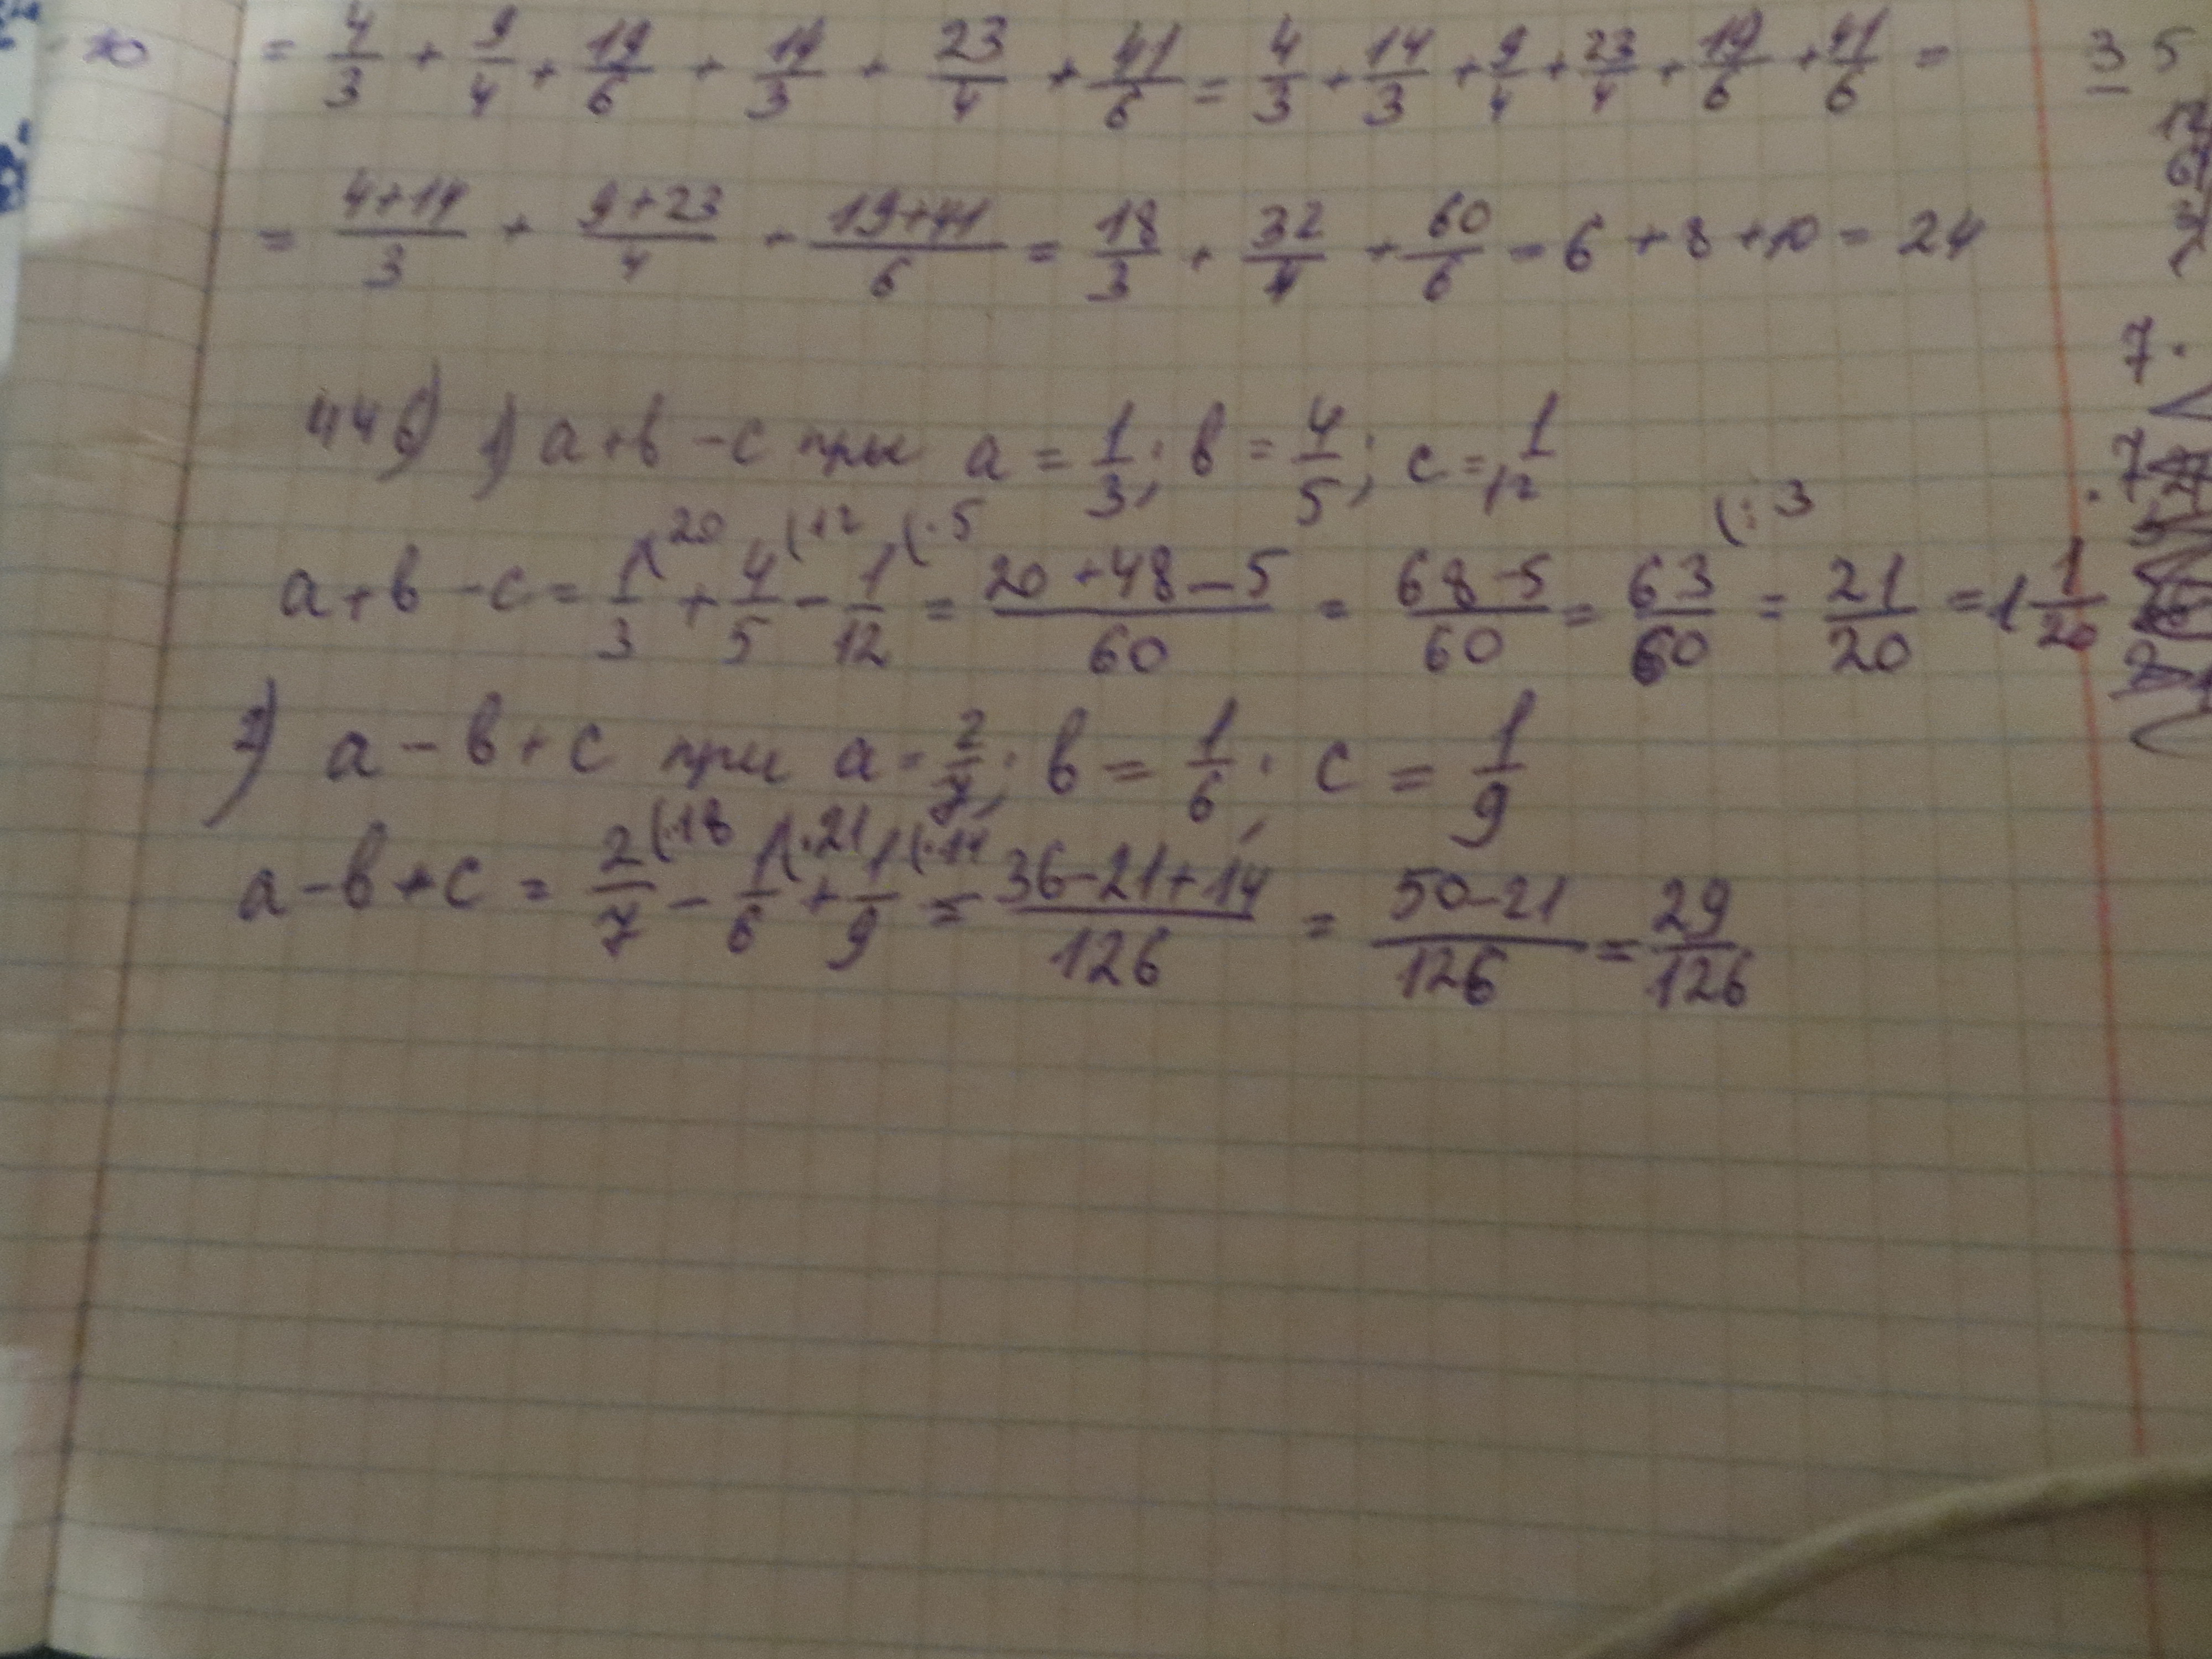 20 = 4/3 + 9/4 + 19/6 + 14/3 + 23/4 + 41/6 = 4/3 + 14/3 + 9/4 + 23/4 + 19/6 + 41/6 = 3 5
= (4+14)/3 + (9+23)/4 + (19+41)/6 = 18/3 + 32/4 + 60/6 = 6 + 8 + 10 = 24
446) 1) a+b-c при a = 1/3; b = 4/5; c = 1/12
a+b-c = 1/3(·20 + 4/5(·12 - 1/12(·5 = (20+48-5)/60 = (68-5)/60 = 63/60(:3 = 21/20 = 1 1/20
2) a-b+c при a = 2/7; b = 1/6; c = 1/9
a-b+c = 2/7(·18 - 1/6(·21 + 1/9(·14 = (36-21+14)/126 = (50-21)/126 = 29/126